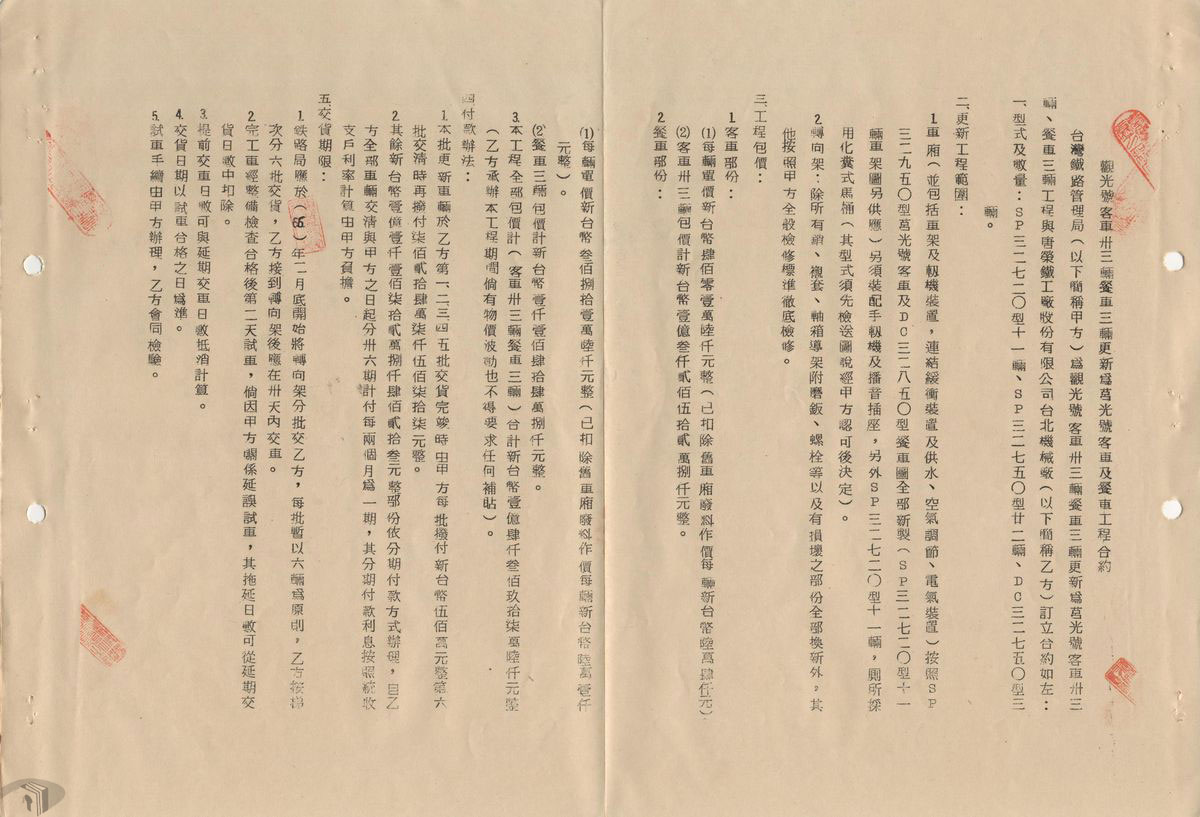 觀光號客車卅三輛餐車三輛更新為莒光號客車及餐車工程合約
台灣鐵路管理局（以下簡稱甲方）為觀光號客車卅三輛餐車三輛更新為莒光號客車卅三
輛、餐車三輛工程與唐榮鐵工廠股份有限公司台北機械廠（以下簡稱乙方）訂立合約如左：
一、型式及數量：ＳＰ三二七二〇型十一輛、ＳＰ三二七五〇型廿二輛、ＤＣ三二七五〇型三
輛。
二、更新工程範圍：
1. 車廂（並包括車架及軔機裝置，連結緩衝裝置及供水、空氣調節、電氣裝置）按照ＳＰ
三二九五〇型莒光號客車及ＤＣ三二八五〇型餐車圖全部新製（ＳＰ三二七二〇型十一
輛車架圖另供應）另須裝配手軔機及播音插座，另外ＳＰ三二七二〇型十一輛，廁所採
用化糞式馬桶（其型式須先檢送圖說經甲方認可後決定）。
2. 轉向架：除所有銷、襯套、軸箱導架附磨鈑、螺栓等以及有損壞之部份全部換新外，其
他按照甲方全般檢修標準徹底檢修。
三、工程包價：
1. 客車部份：
(1) 每輛單價新台幣肆佰零壹萬陸仟元整（已扣除舊車廂廢料作價每輛新台幣陸萬肆仟元）
(2) 客車卅三輛包價計新台幣壹億叁仟貳佰伍拾貳萬捌仟元整。
2. 餐車部份：
(1) 每輛單價新台幣叁佰捌拾壹萬陸仟元整（已扣除舊車廂廢料作價每輛新台幣陸萬壹仟
元整）。
(2) 餐車三輛包價計新台幣壹仟壹佰肆拾肆萬捌仟元整。
3. 本工程全部包價計（客車卅三輛餐車三輛）合計新台幣壹億肆仟叁佰玖拾柒萬陸仟元整
（乙方承辦本工程期間倘有物價波動也不得要求任何補貼）。
四、付款辦法：
1. 本批更新車輛於乙方第一、二、三、四、五批交貨完竣時由甲方每批撥付新台幣伍佰萬元整第六
批交清時再撥付柒佰貳拾肆萬柒仟伍佰柒拾柒元整。
2. 其餘新台幣壹億壹仟壹佰柒拾貳萬捌仟肆佰貳拾叁元整部份依分期付款方式辦理，自乙
方全部車輛交清與甲方之日起分卅六期計付每兩個月為一期，其分期付款利息按照統收
支戶利率計算由甲方負擔。
五、交貨期限：
1. 鐵路局應於（65.）年二月底開始將轉向架分批交乙方，每批暫以六輛為原則，乙方按梯
次分六批交貨，乙方接到轉向架後應在卅天內交車。
2. 完工車經整備檢查合格後第二天試車，倘因甲方關係延誤試車，其拖延日數可從延期交
貨日數中扣除。
3. 提前交車日數可與延期交車日數抵消計算。
4. 交貨日期以試車合格之日為準。
5. 試車手續由甲方辦理，乙方會同檢驗。